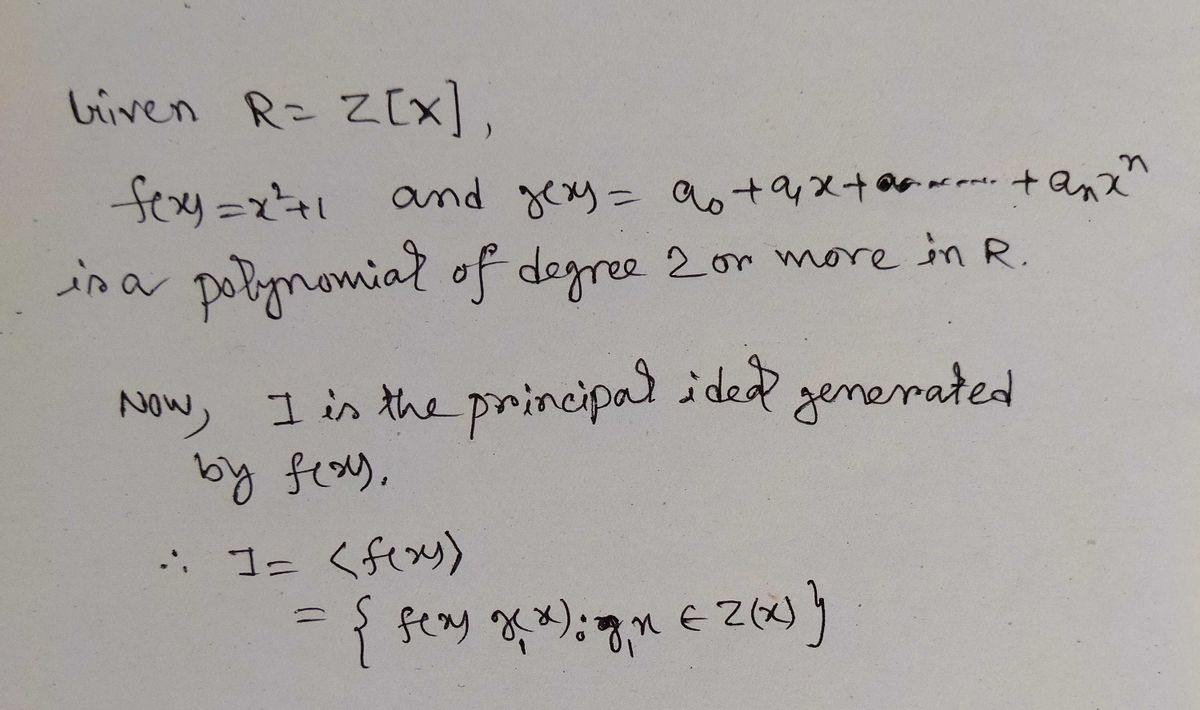 Given R = Z[x],
f(x) = x²+1 and g(x) = a₀ + a₁x + ........ + aₙxⁿ
is a polynomial of degree 2 or more in R.
Now, I is the principal ideal generated
by f(x).
∴ I = <f(x)>
= { f(x) g₁(x) : g₁x ∈ Z(x) }